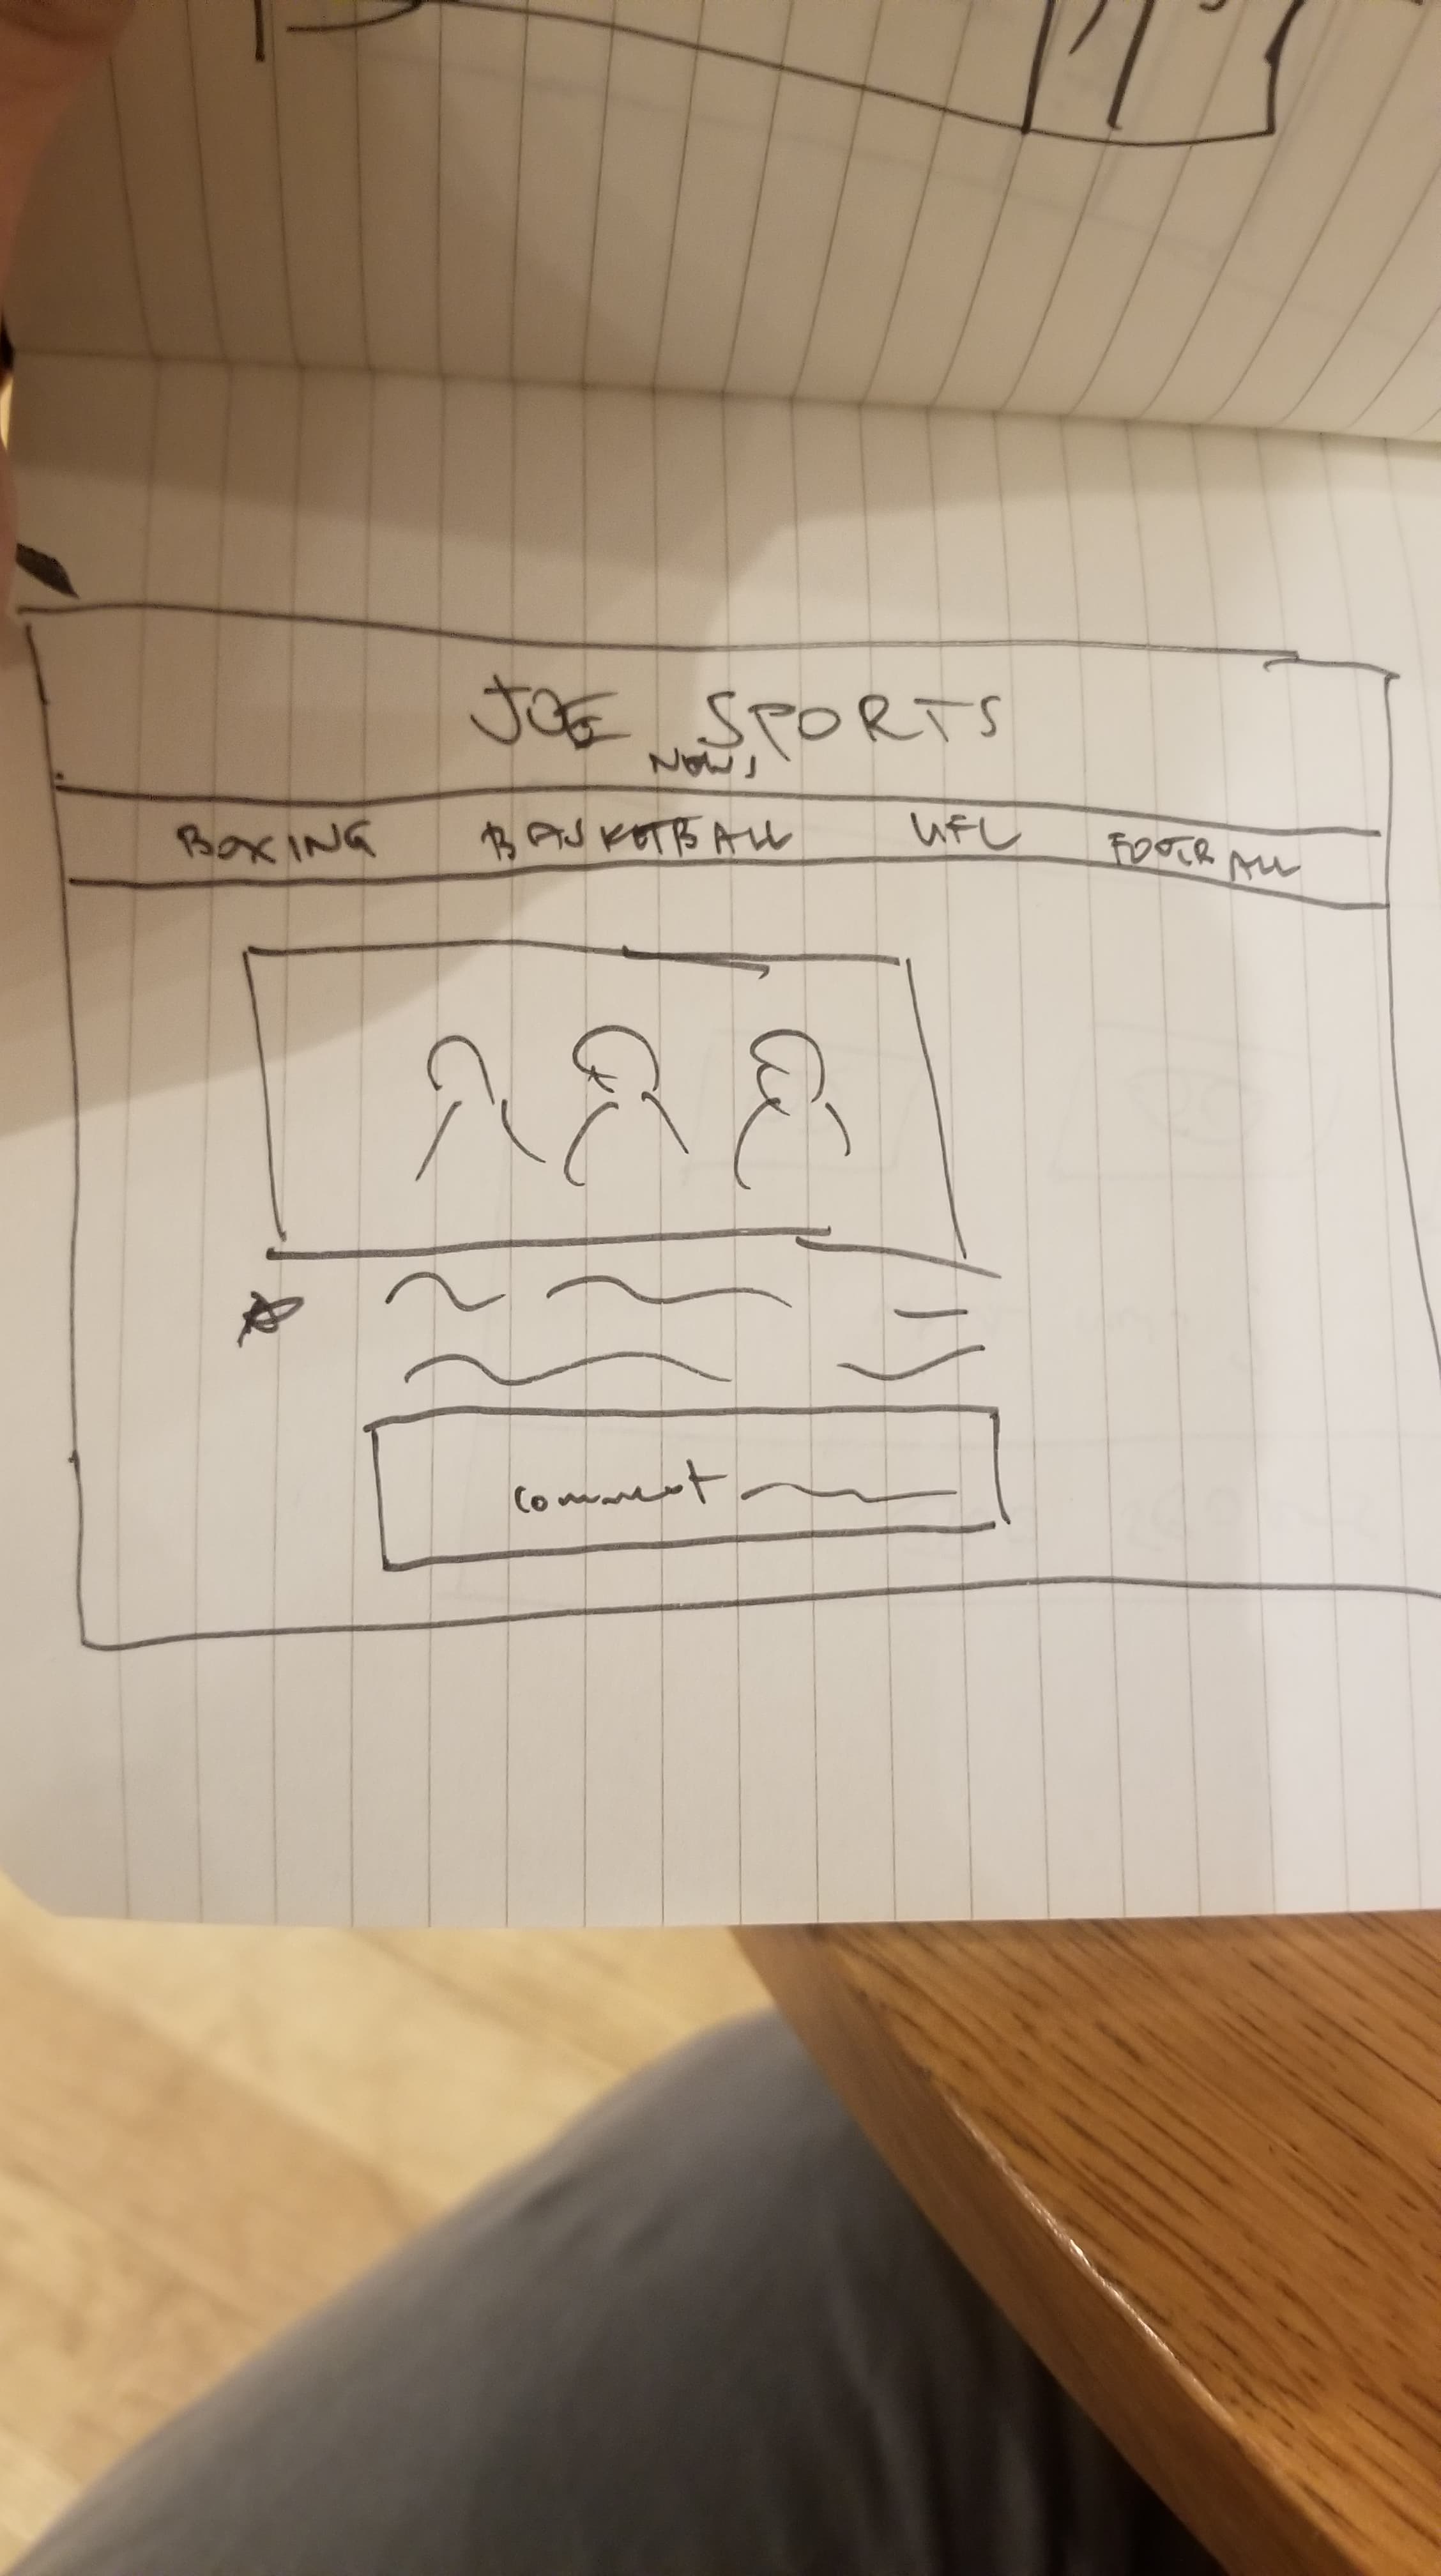 JOE SPORTS
NEWS
BOXING BASKETBALL UFC FOOTBALL
comment